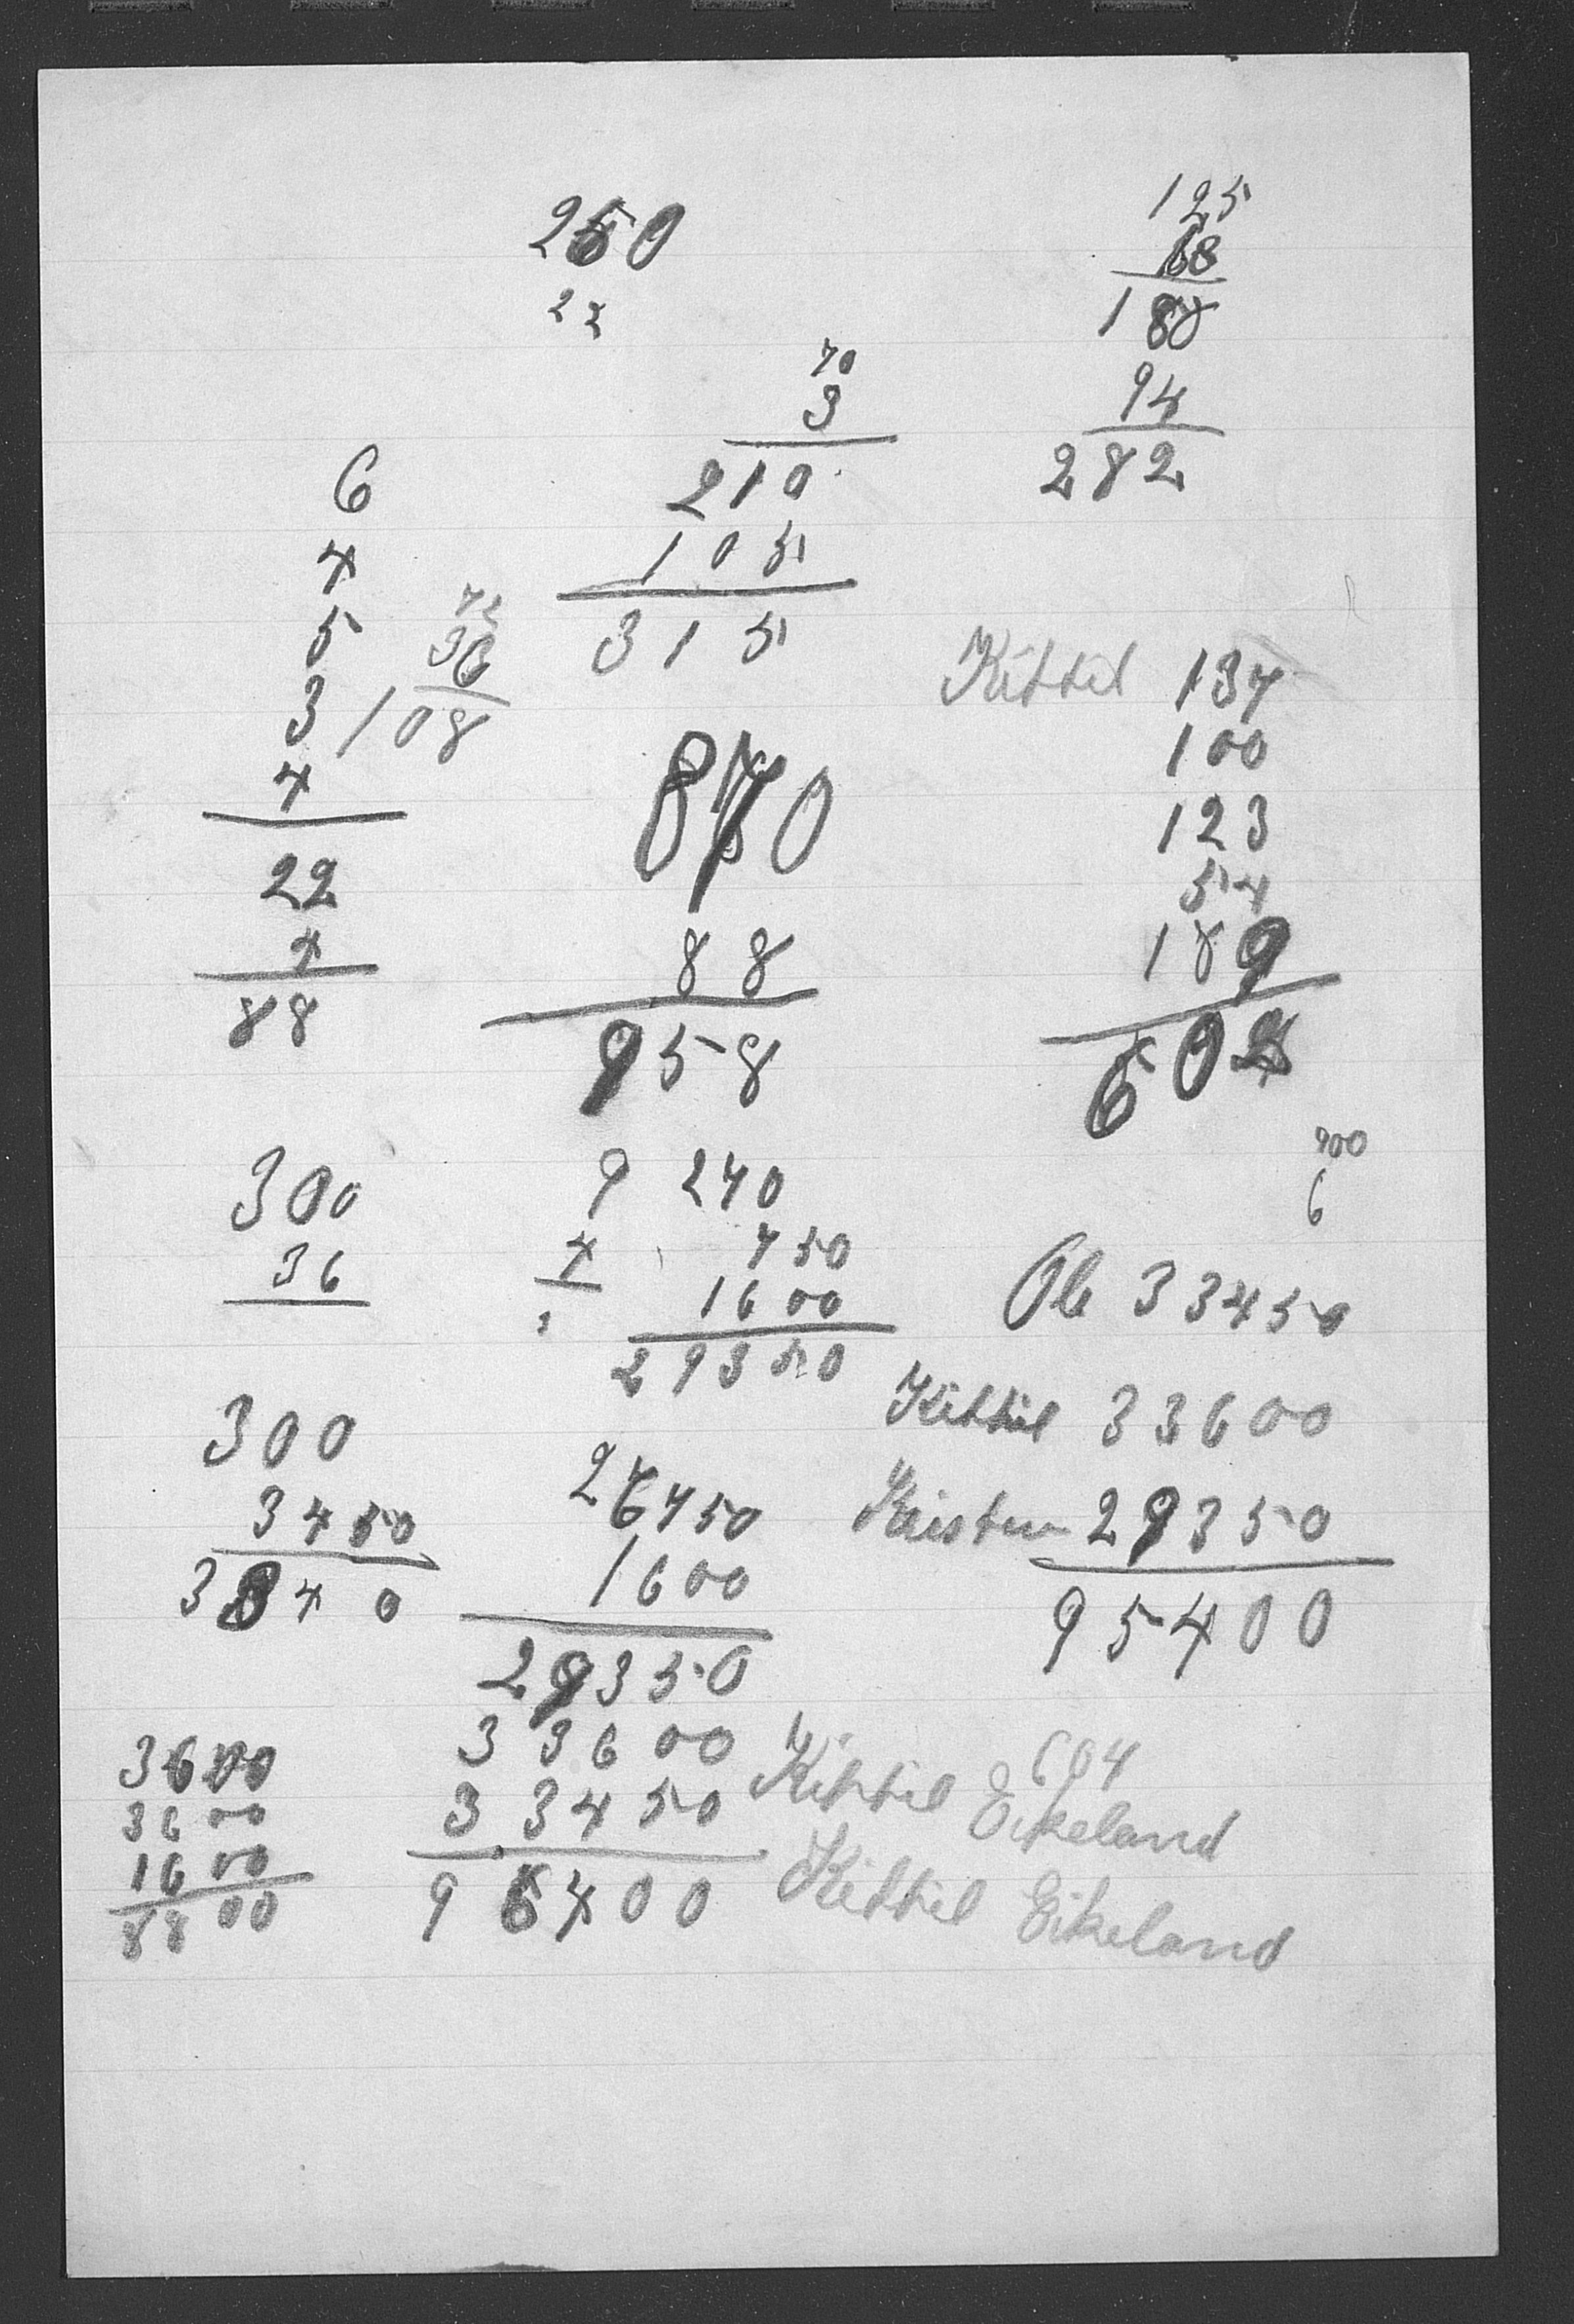 250
22
125
63
188
94
282
70
3
210
105
315
6
4
5
3
4
22
4
88
72
36
108
870
88
958
Kittil 137
100
123
54
189
604
700
6
300
36
9
4
270
750
1600
29350
Ole 33450
Kittil 33600
Kristen 29350
95400
300
3450
3840
27750
1600
29350
33600
33450
96400
3600
3600
1600
8800
604
Kittil Eikeland
Kittil Eikeland